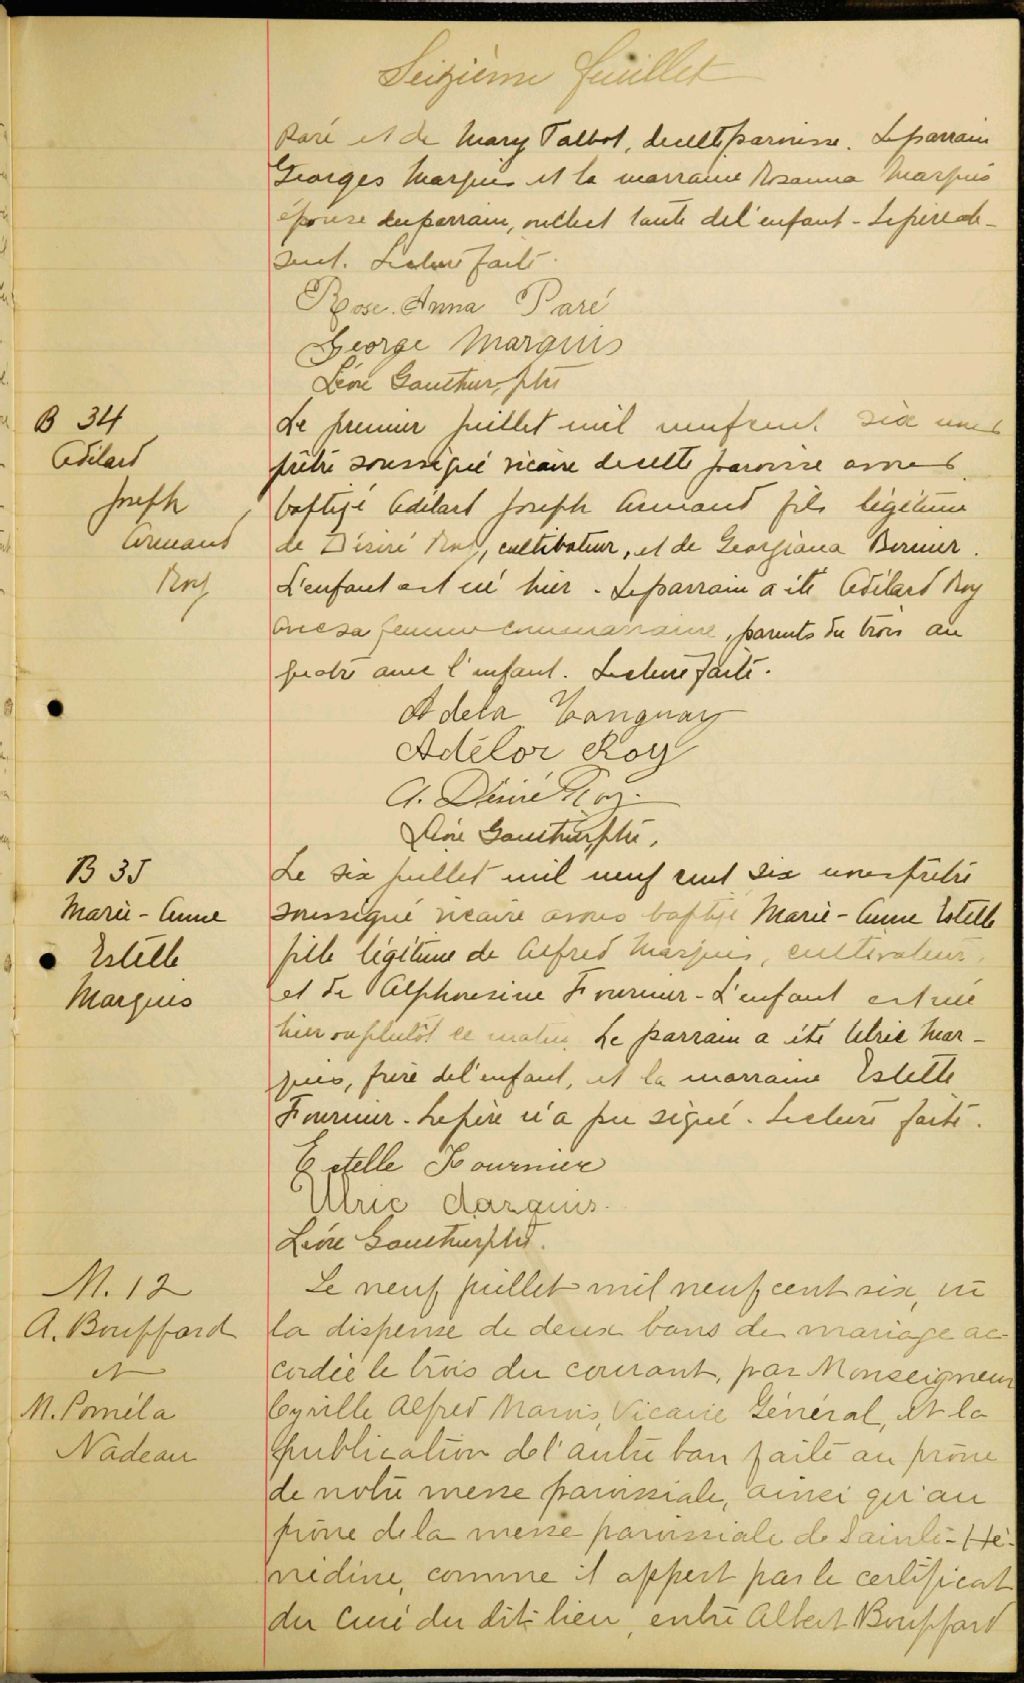 Seizième feuillet
Paré et de Mary Talbot, de cette paroisse. Le parrain
Georges Marquis et la marraine Rosanna Marquis
épouse du parrain, oncle et tante de l'enfant - Le père ab-
sent. Lecture faite.
Rose-Anna Paré
George Marquis
Léon Gauthier, ptre
B 34
Adélard
Joseph
Armand
Roy
Le premier juillet mil neuf cent six nous
prêtre soussigné vicaire de cette paroisse avons
baptisé Adélard Joseph Armand fils légitime
de Désiré Roy, cultivateur, et de Georgiana Bernier.
L'enfant est né hier. Le parrain a été Adélard Roy
avec sa femme comme marraine, parents du trois au
quatre avec l'enfant. Lecture faite.
Adela Tanguay
Adélor Roy
A. Désiré Roy.
Gauthier, ptre.
B 35
Marie-Anne
Estelle
Marquis
Le six juillet mil neuf cent six nous prêtre
soussigné vicaire avons baptisé Marie-Anne Estelle
fille légitime de Alfred Marquis, cultivateur,
et de Alphonsine Fournier - L'enfant est née
hier ou plutôt ce matin. Le parrain a été Ulric Mar-
quis, frère de l'enfant, et la marraine Estelle
Fournier. Le père n'a pu signé. Lecture faite.
Estelle Fournier
Ulric Marquis.
Gauthier ptre.
M. 12
A. Bouffard
et
M. Poméla
Nadeau
Le neuf juillet mil neuf cent six, vu
la dispense de deux bans de mariage ac-
cordée le trois du courant, par Monseigneur
Cyrille Alfred Marois, Vicaire Général, et la
publication de l'autre ban faite au prône
de notre messe paroissiale, ainsi qu'au
prône de la messe paroissiale de Sainte-Hé-
nédine, comme il appert par le certificat
du curé du dit lieu, entre Albert Bouffard